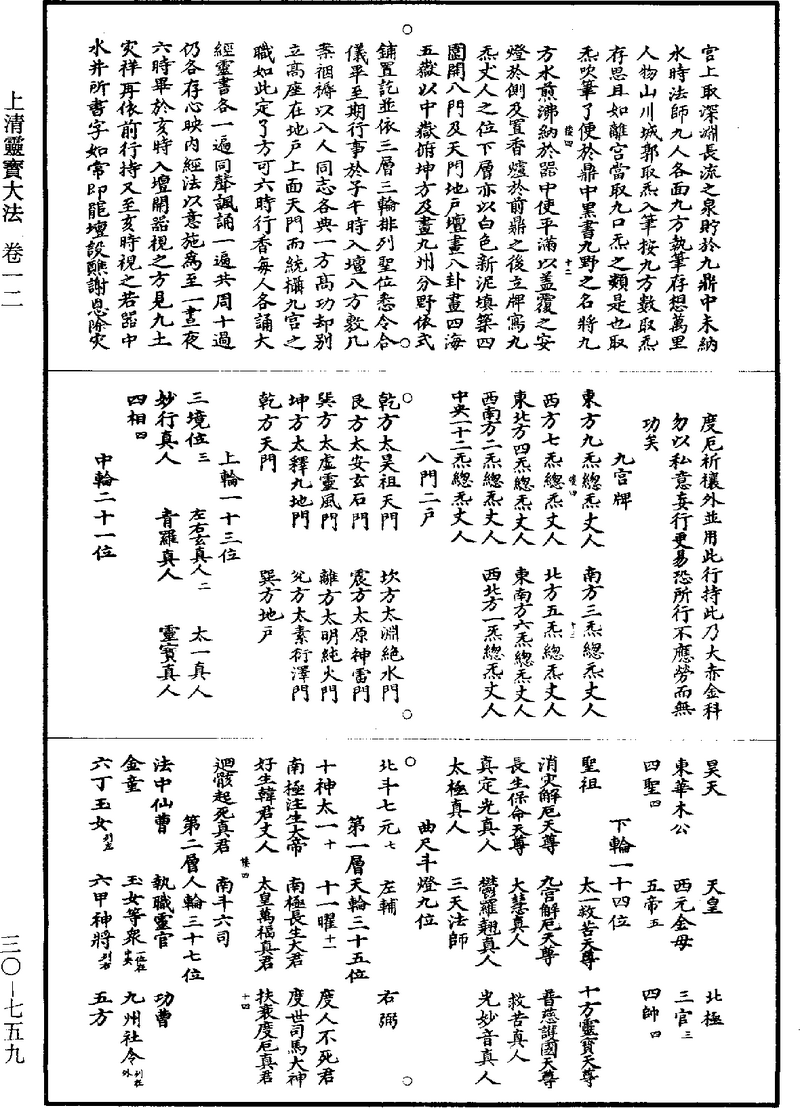 上清靈寶大法 卷一二
三〇—七五九
宮上取深淵長流之泉貯於九鼎中未納
水時法師九人各面九方執筆存想萬里
人物山川城郭取炁入筆按九方數取炁
存思且如離宮當取九口炁之類是也取
炁吹筆了便於鼎中黑書九野之名將九
方水煎沸納於器中使平滿以蓋覆之安
燈於側及置香爐於前鼎之後立牌寫九
炁丈人之位下層亦以白色新泥填築四
圍開八門及天門地戶壇畫八卦畫四海
五嶽以中嶽俯坤方及畫九州分野依式
鋪置訖並依三層三輪排列聖位悉令合
儀畢至期行事於子午時入壇八方敷几
案裀褥以八人同志各典一方高功却別
立高座在地戶上面天門而統攝九宮之
職如此定了方可六時行香每人各誦大
經靈書各一遍同聲諷誦一遍共周十過
仍各存心映內經法以意施為至一晝夜
六時畢於亥時入壇開器視之方見九土
灾祥再依前行持又至亥時視之若器中
水并所書字如常即能壇設醮謝恩除灾
度厄祈禳外並用此行持此乃大赤金科
勿以私意妄行更易恐所行不應勞而無
功矣
九宮牌
東方九炁總炁丈人 南方三炁總炁丈人
西方七炁總炁丈人 北方五炁總炁丈人
東北方四炁總炁丈人 東南方六炁總炁丈人
西南方二炁總炁丈人 西北方一炁總炁丈人
中央一十二炁總炁丈人
八門二戶
乾方太昊祖天門 坎方太淵絶水門
艮方太安玄石門 震方太原神雷門
巽方太虛靈風門 離方太明純火門
坤方太釋九地門 兌方太素衍澤門
乾方天門 巽方地戶
上輪一十三位
三境位三 左右玄真人二 太一真人
妙行真人 青羅真人 靈寶真人
四相四
中輪二十一位
昊天 天皇 北極
東華木公 西元金母 三官三
四聖四 五帝五 四帥四
下輪一十四位
聖祖 太一救苦天尊 十方靈寶天尊
消灾解厄天尊 九宮解厄天尊 普慈護國天尊
長生保命天尊 大慧真人 救苦真人
真定光真人 鬱羅翹真人 光妙音真人
太極真人 三天法師
曲尺斗燈九位
北斗七元七 左輔 右弼
第一層天輪三十五位
十神太一十 十一曜十一 度人不死君
南極注生大帝 南極長生大君 度世司馬大神
好生韓君丈人 太皇萬福真君 扶衰度厄真君
迴骸起死真君 南斗六司
第二層人輪三十七位
法中仙曹 執職靈官 功曹
金童 玉女等衆 九州社令
六丁玉女 六甲神將 五方